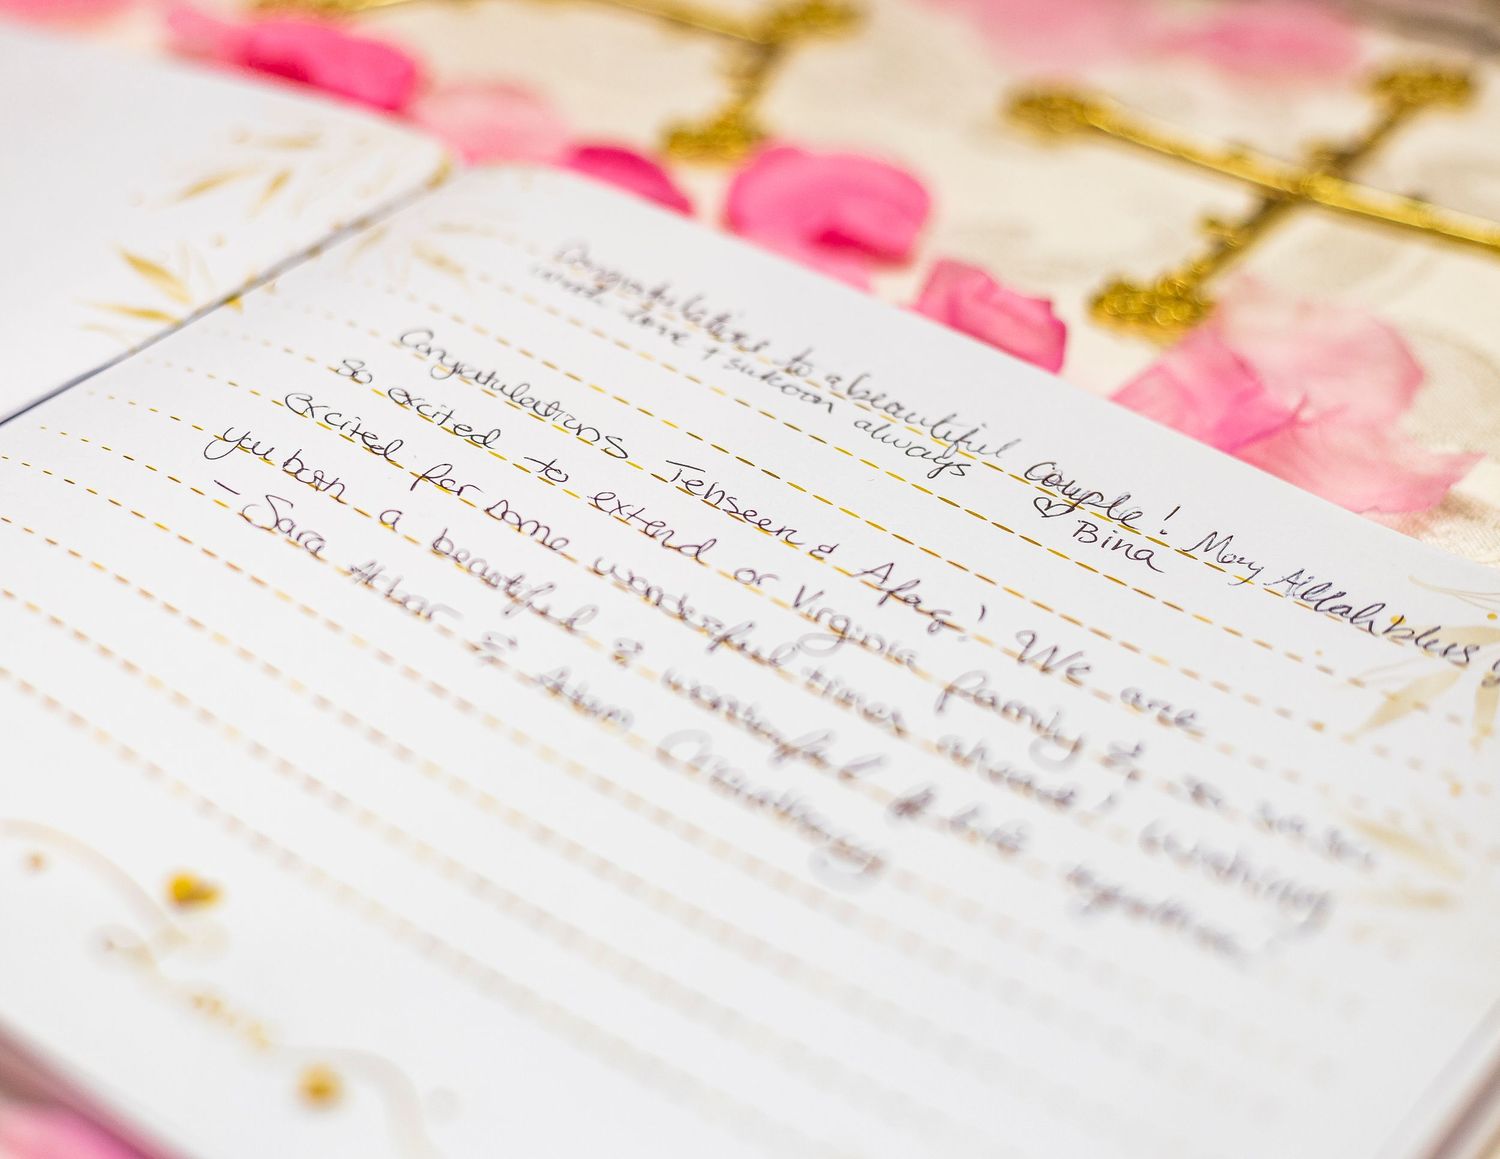 Congratulations to a beautiful couple! May Aillah bless
with love + sukoon always ♡ Bina
Congratulations Tehseen & Afaq! We are
So excited to extend our Virginia family & so
excited for some wonderful times ahead! Wishing
you both a beautiful & wonderful life together!
- Sara Akbar & Adam